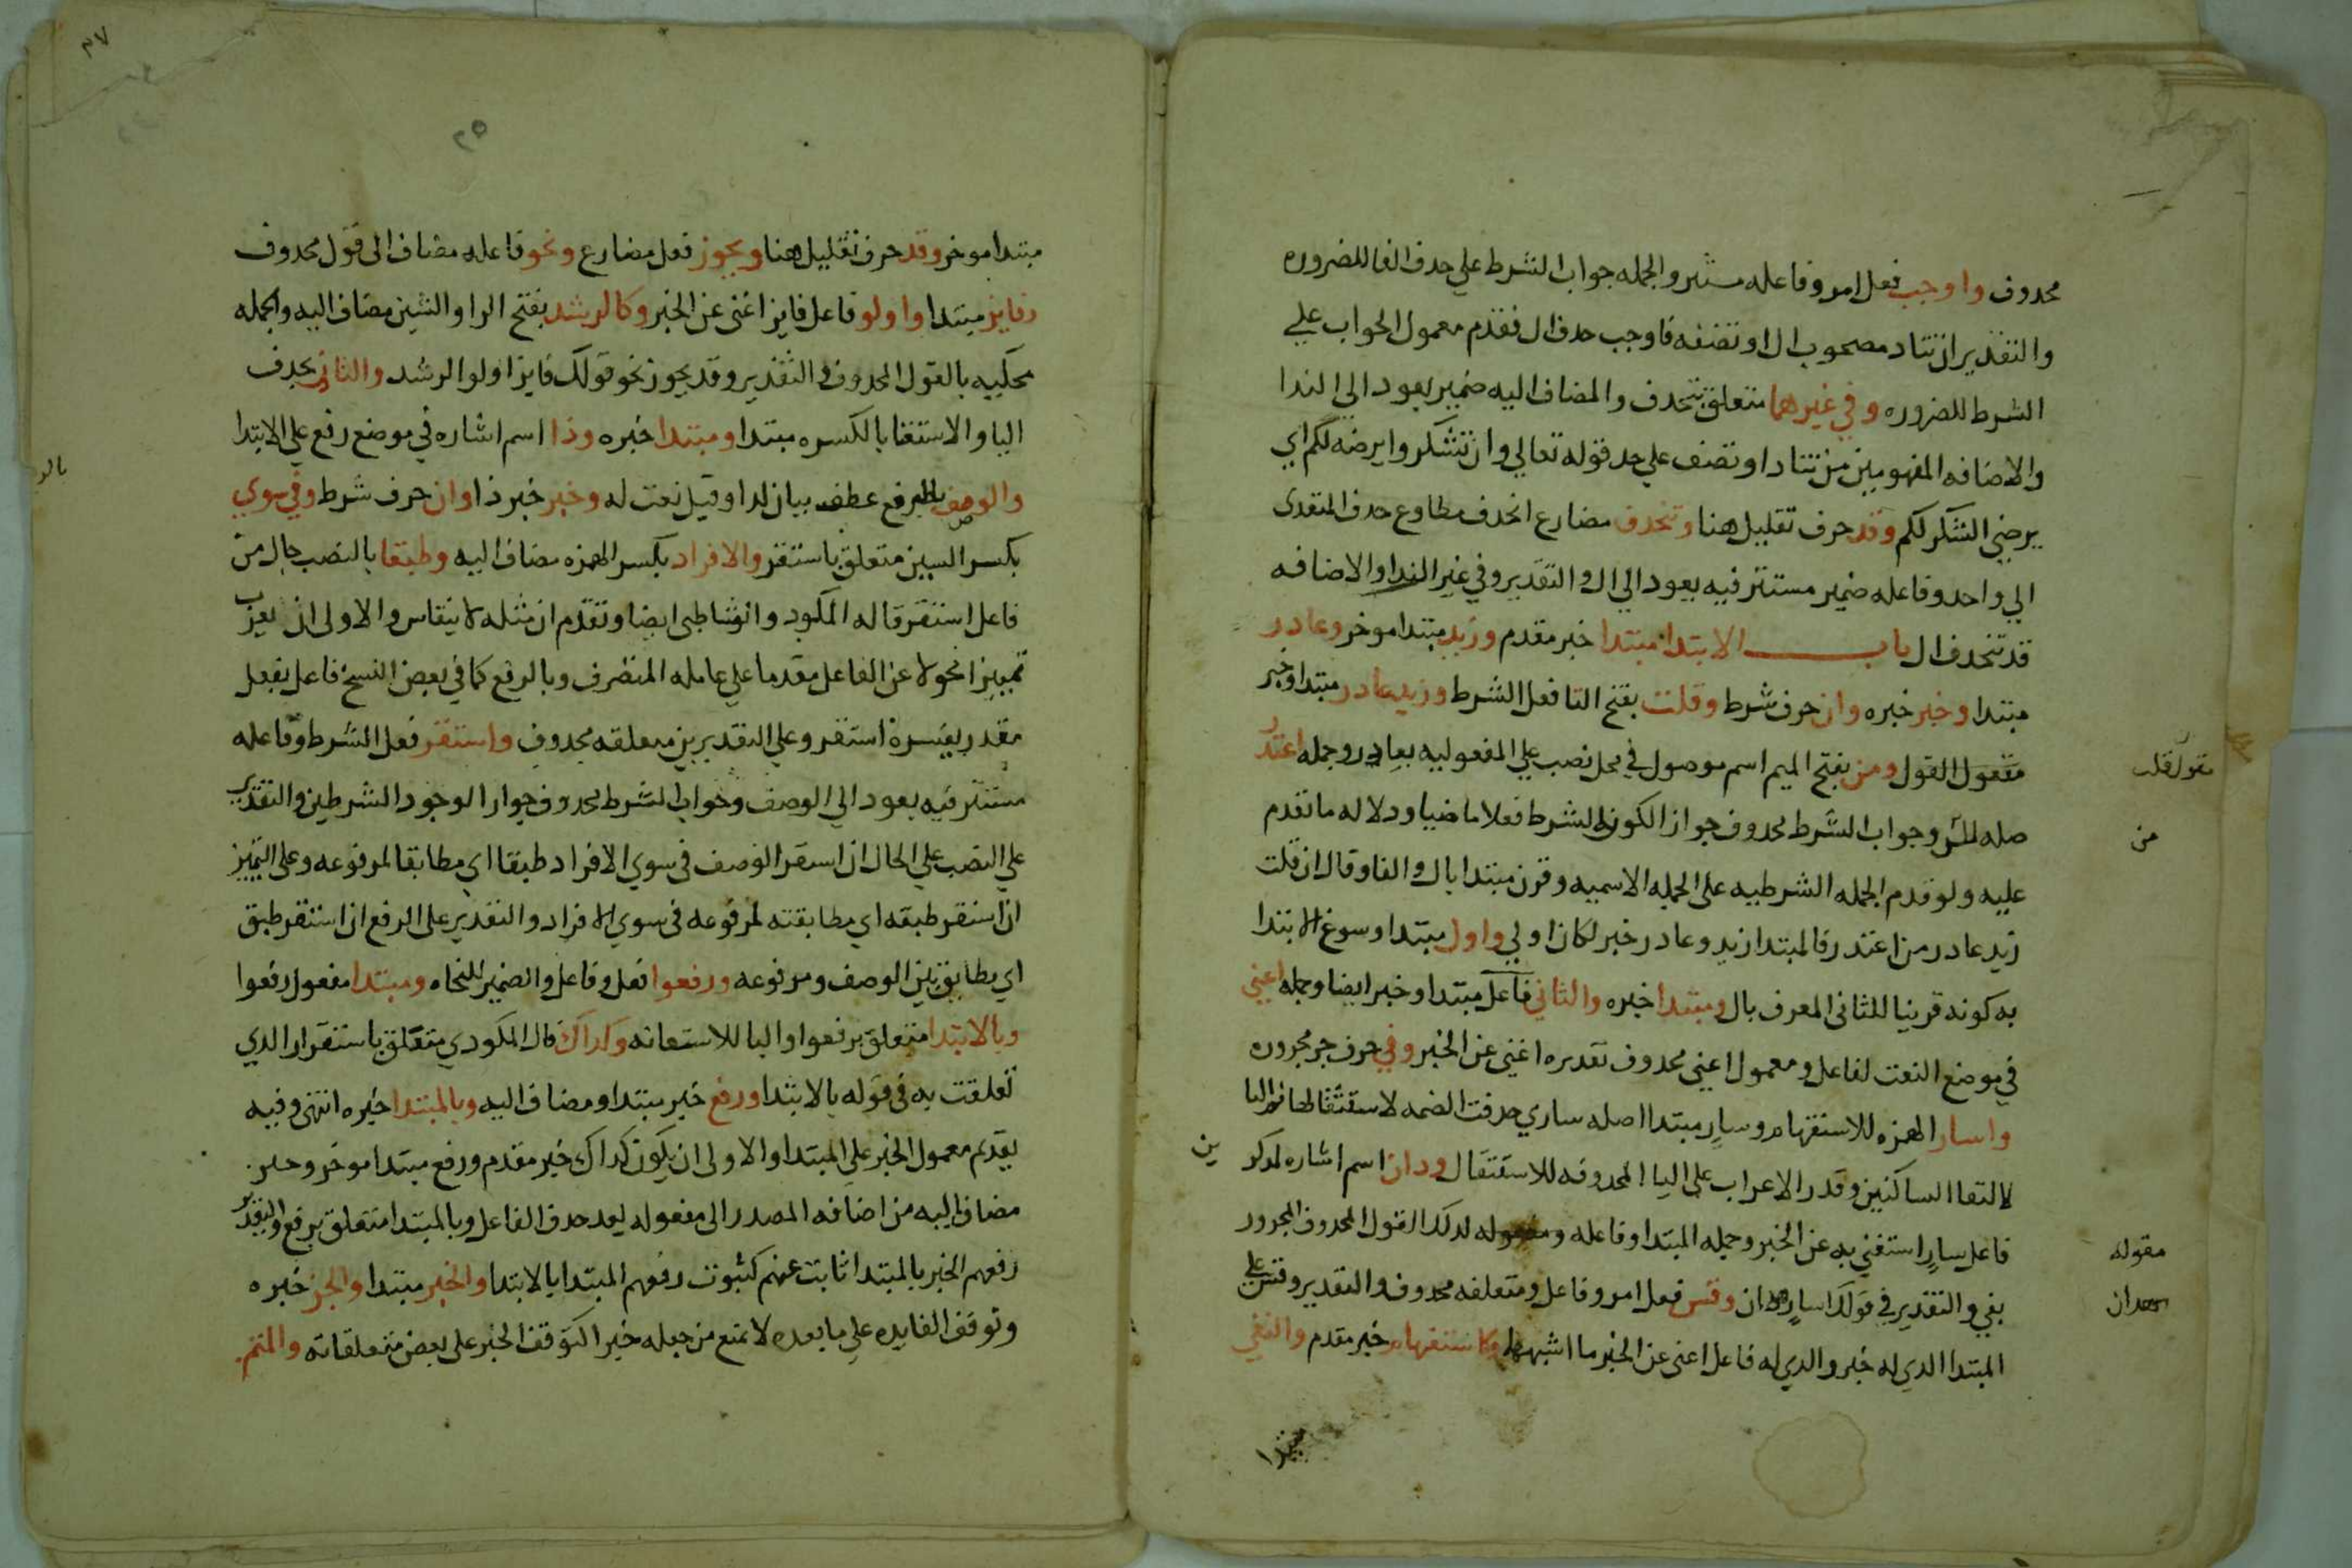 محدوف واوجب فعل امر وفاعله مستتر والجمله جواب الشرط علي حدف الفا للضروره
والتقدير ان تناد مصحوب ال او تضفه فاوجب حدف ال فقدم معمول الجواب علي
الشرط للضروره وفي غيرهما متعلق بتحدف والمضاف اليه ضمير يعود الي الندا
والاضافه المفهومين من تناد او تضف علي حد قوله تعالي وان تشكروا يرضه لكم اي
يرضي الشكر لكم وقد حرف تقليل هنا وتنحدف مضارع انحدف مطاوع حدف المتعدى
الي واحد وفاعله ضمير مستتر فيه يعود الي ال والتقدير وفي غير الندا والاضافه
قد تنحدف ال باب الابتدا مبتدا خبر مقدم وزيد مبتدا موخر وعادر
مبتدا وخبر خبره وان حرف شرط وقلت بفتح التا فعل الشرط وزيد عادر مبتدا وخبر
مقول القول ومن بفتح الميم اسم موصول في محل نصب علي المفعوليه بعادر وجمله اعتدر
صله لمن وجواب الشرط محدوف جوازا لكون الشرط فعلا ماضيا ودلاله ما تقدم
عليه ولو قدم الجمله الشرطيه على الجمله الاسميه وقرن مبتدا بال والفا وقال ان قلت
زيد عادر من اعتدر فالمبتدا زيد وعادر خبر لكان اولي واول مبتدا وسوغ الابتدا
به كونه قرينا للثانى المعرف بال ومبتدا خبره والثاني فاعل مبتدا وخبر ايضا وجمله اغني
في موضع النعت لفاعل ومعمول اغني محدوف تقديره اغني عن الخبر وفي حرف جر مجروره
واسار الهمزه للاستفهام وسار مبتدا اصله ساري حدفت الضمه لاستثقالها فالياء
لالتقا الساكنين وقدر الاعراب على اليا المحدوفه للاستثقال ودان اسم اشاره لمدكرين
فاعل سار استغني به عن الخبر وجمله المبتدا وفاعله مقوله لدلك القول المحدوف المجرور
بفي والتقدير في قولك اسار دان وقس فعل امر وفاعل ومتعلقه محدوف والتقدير وقس علي
المبتدا الدي له خبر والدي له فاعل اغنى عن الخبر ما اشبهها وكاستفهام خبر مقدم والنفي
مقول قلت
من
مقوله
٢٧
٢٥
مبتدا موخر وقد حرف تقليل هنا ويجوز فعل مضارع ونحو فاعله مضاف الى قول محدوف
وفايز مبتدا واولو فاعل فايز اغنى عن الخبر وكالرشد بفتح الرا والشين مضاف اليه والجمله
محكيه بالقول المحدوف والتقدير وقد يجوز نحو قولك فايز اولو الرشد والثاني بحدف
اليا والاستغنا بالكسره مبتدا ومبتدا خبره وذا اسم اشاره في موضع رفع علي الابتدا
والوصف بالرفع عطف بيان لدا وقيل نعت له وخبر خبر ذا وان حرف شرط وفي سوي
بكسر السين متعلق باستقر والافراد بكسر الهمزه مضاف اليه وطبقا بالنصب حال من
فاعل استقر قاله المكودي والشاطبي ايضا وتقدم ان مثله لا ينقاس والاولى ان يعرب
تمييزا محولا عن الفاعل مقدما علي عامله المتصرف وبالرفع كما في بعض النسخ فاعل بفعل
مقدر يفسره استقر وعلي التقديرين متعلقه محدوف واستقر فعل الشرط وفاعله
مستتر فيه يعود الي الوصف وجواب الشرط محدوف جوازا لوجود الشرطين والتقدير
علي النصب علي الحال ان استقر الوصف في سوي الافراد طبقا اي مطابقا لمرفوعه وعلى التمييز
ان استقر طبقه اي مطابقته لمرفوعه في سوي الافراد والتقدير على الرفع ان استقر طبق
اي يطابق بين الوصف ومرفوعه ورفعوا فعل وفاعل والضمير للنحاه ومبتدا مفعول رفعوا
وبالابتدا متعلق برفعوا والبا للاستعانه وكداك قال المكودي متعلق باستقرار الدي
تعلقت به في قوله بالابتدا ورفع خبر مبتدا ومضاف اليه وبالمبتدا خبره انتهى وفيه
تقديم معمول الخبر علي المبتدا والاولى ان يكون كداك خبر مقدم ورفع مبتدا موخر وخبر
مضاف اليه من اضافه المصدر الى مفعوله بعد حدف الفاعل وبالمبتدا متعلق برفع والتقدير
رفعهم الخبر بالمبتدا ثابت عنهم كثبوت رفعهم المبتدا بالابتدا والخبر مبتدا والجز خبره
وتوقف الفايده علي ما بعده لا تمنع من جعله خبرا لتوقف الخبر على بعض متعلقاته والمتم